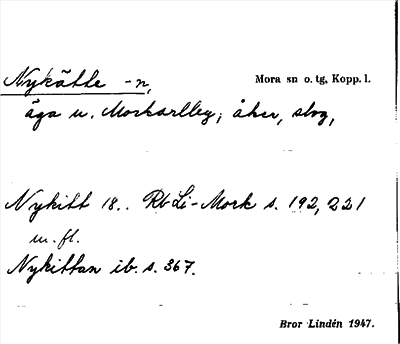 Nykätte -n,
Mora sn o. tg, Kopp. l.
äga u. Morkarlby; åker, slog,
Nykitt 18.. Rb Li-Mork s. 192, 221
m. fl.
Nykittan ib. s. 367.
Bror Lindén 1947.